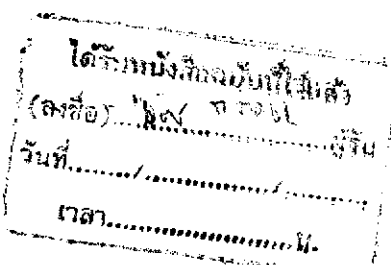 ได้รับหนังสือฉบับนี้ไว้แล้ว
(ลงชื่อ)....................ผู้รับ
วันที่......../............/............
เวลา........................น.